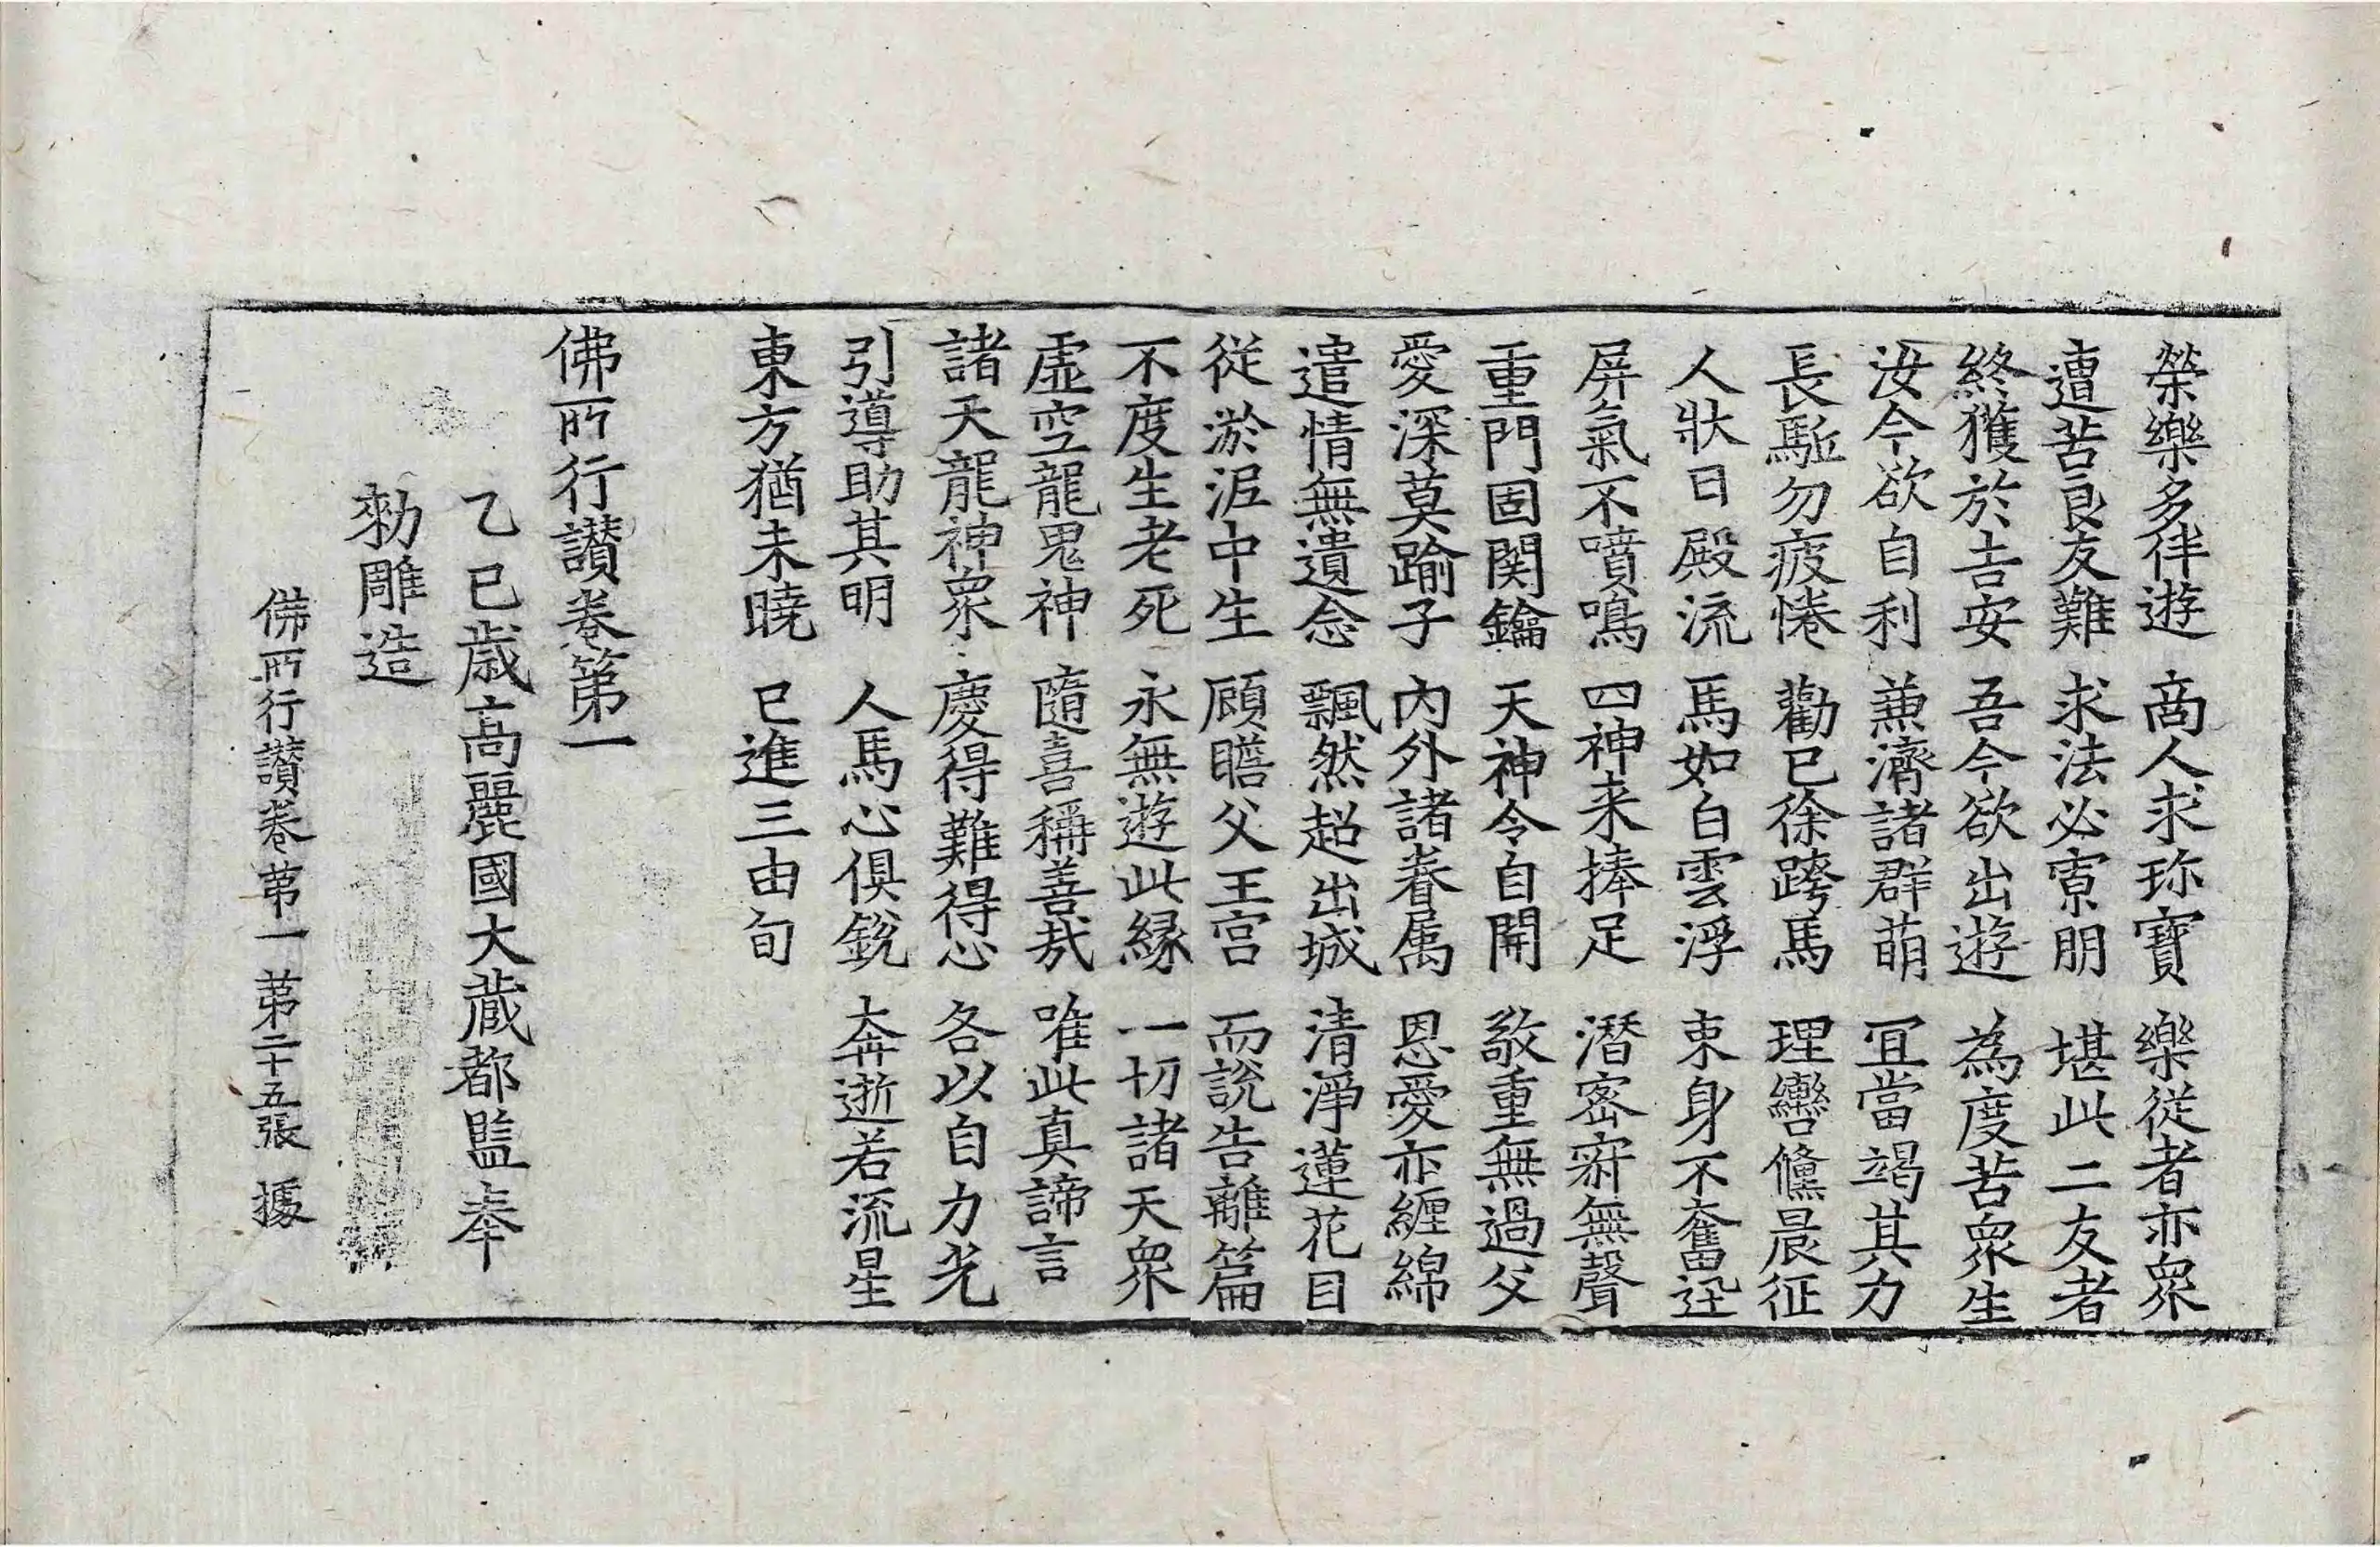 榮樂多伴遊 商人求珎寶 樂従者亦衆
遭苦良友難 求法必寡朋 堪此二友者
終獲於吉安 吾今欲出遊 為度苦衆生
汝今欲自利 兼濟諸群萌 冝當竭其力
長駈勿疲惓 勸已徐跨馬 理轡儵晨征
人狀日殿流 馬如白雲浮 束身不奮迅
屏氣不噴鳴 四神来捧足 潛密寂無聲
重門固関鑰 天神令自開 敬重無過父
愛深莫踰子 內外諸眷属 恩愛亦纒綿
遣情無遺念 飄然超出城 清淨蓮花目
従淤泥中生 顧瞻父王宫 而説告離篇
不度生老死 永無遊此縁 一切諸天衆
虛空龍鬼神 隨喜稱善㢤 唯此真諦言
諸天龍神衆 慶得難得心 各以自力光
引導助其明 人馬心俱銳 奔逝若流星
東方猶未曉 已進三由旬
佛所行讃卷第一
乙巳歳高麗國大藏都監奉
勑雕造
佛所行讃卷第一 第二十五張 據